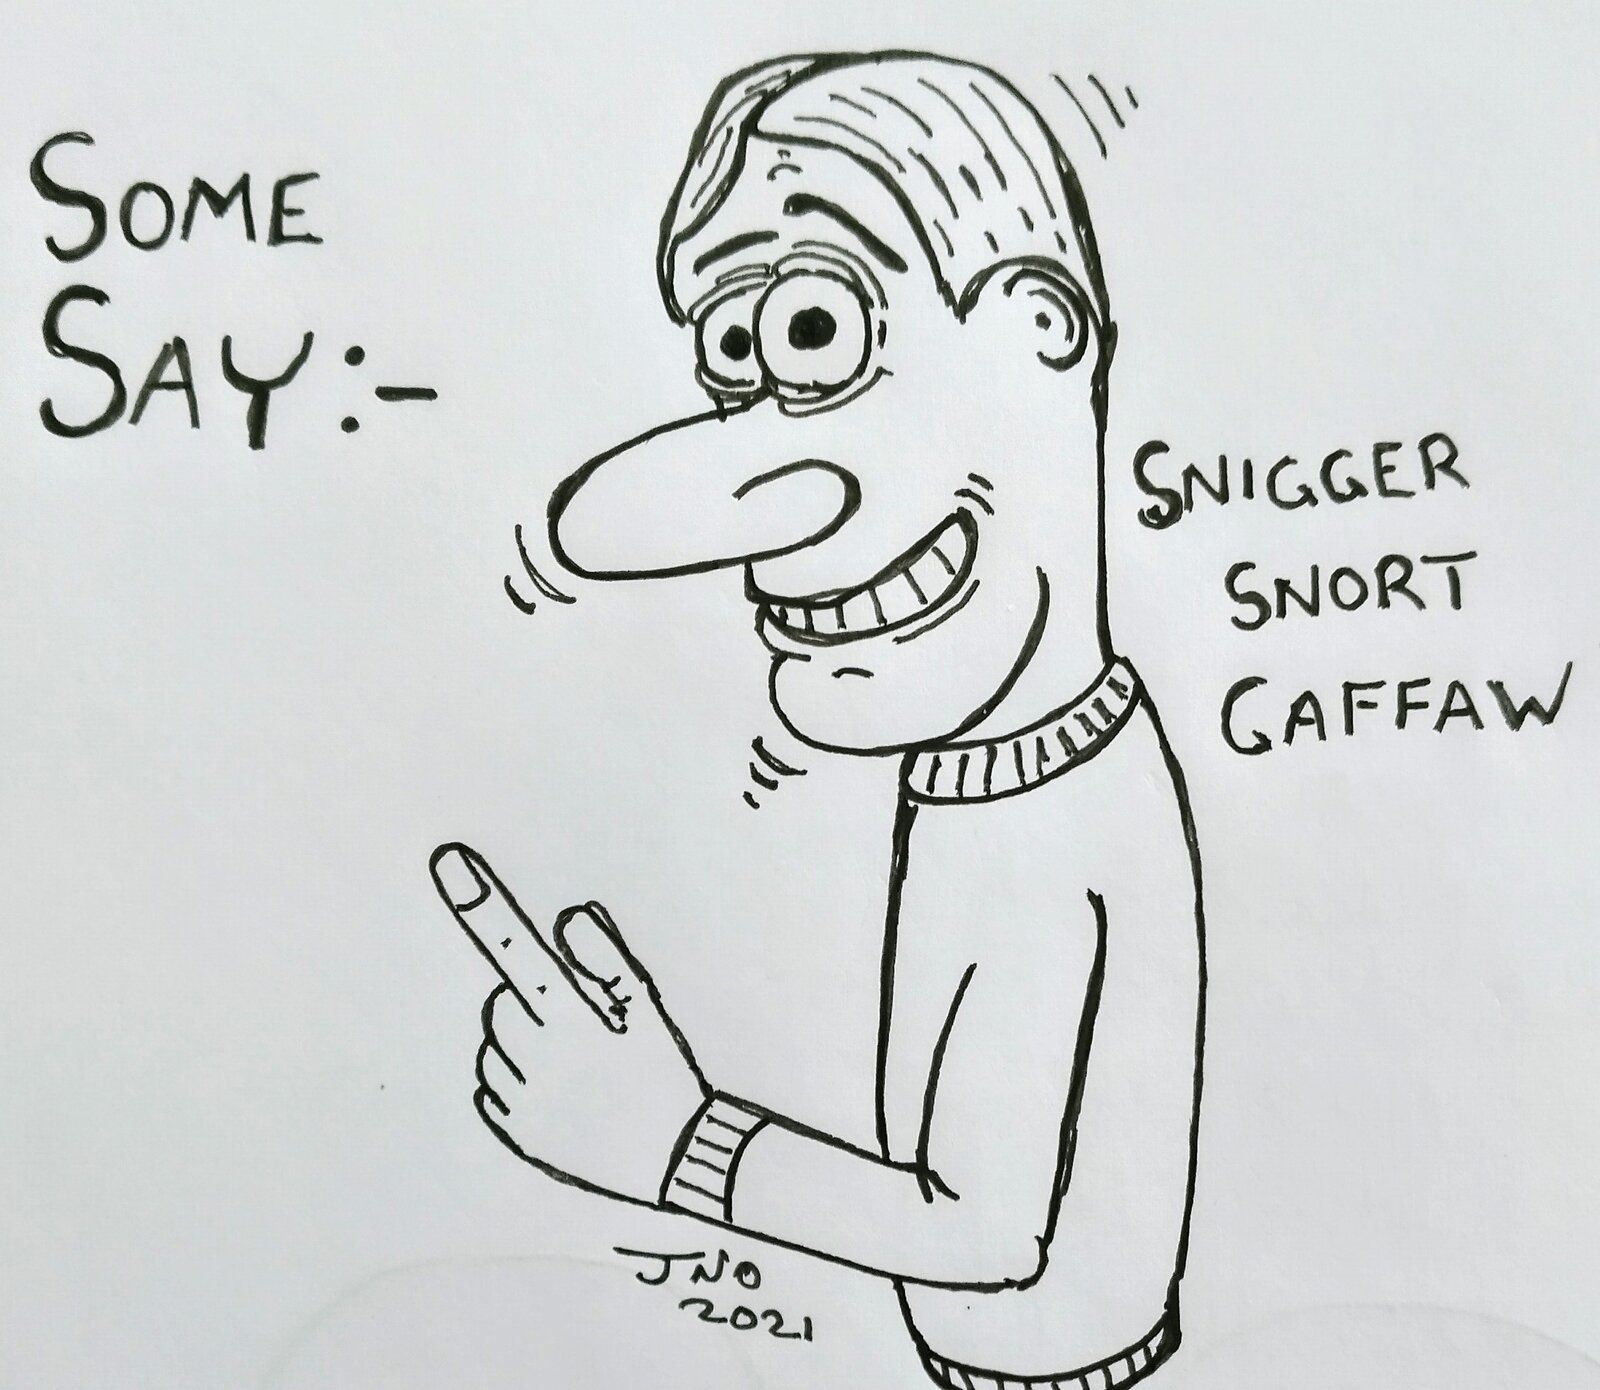 SOME
SAY:-
SNIGGER
SNORT
GAFFAW
JNO
2021